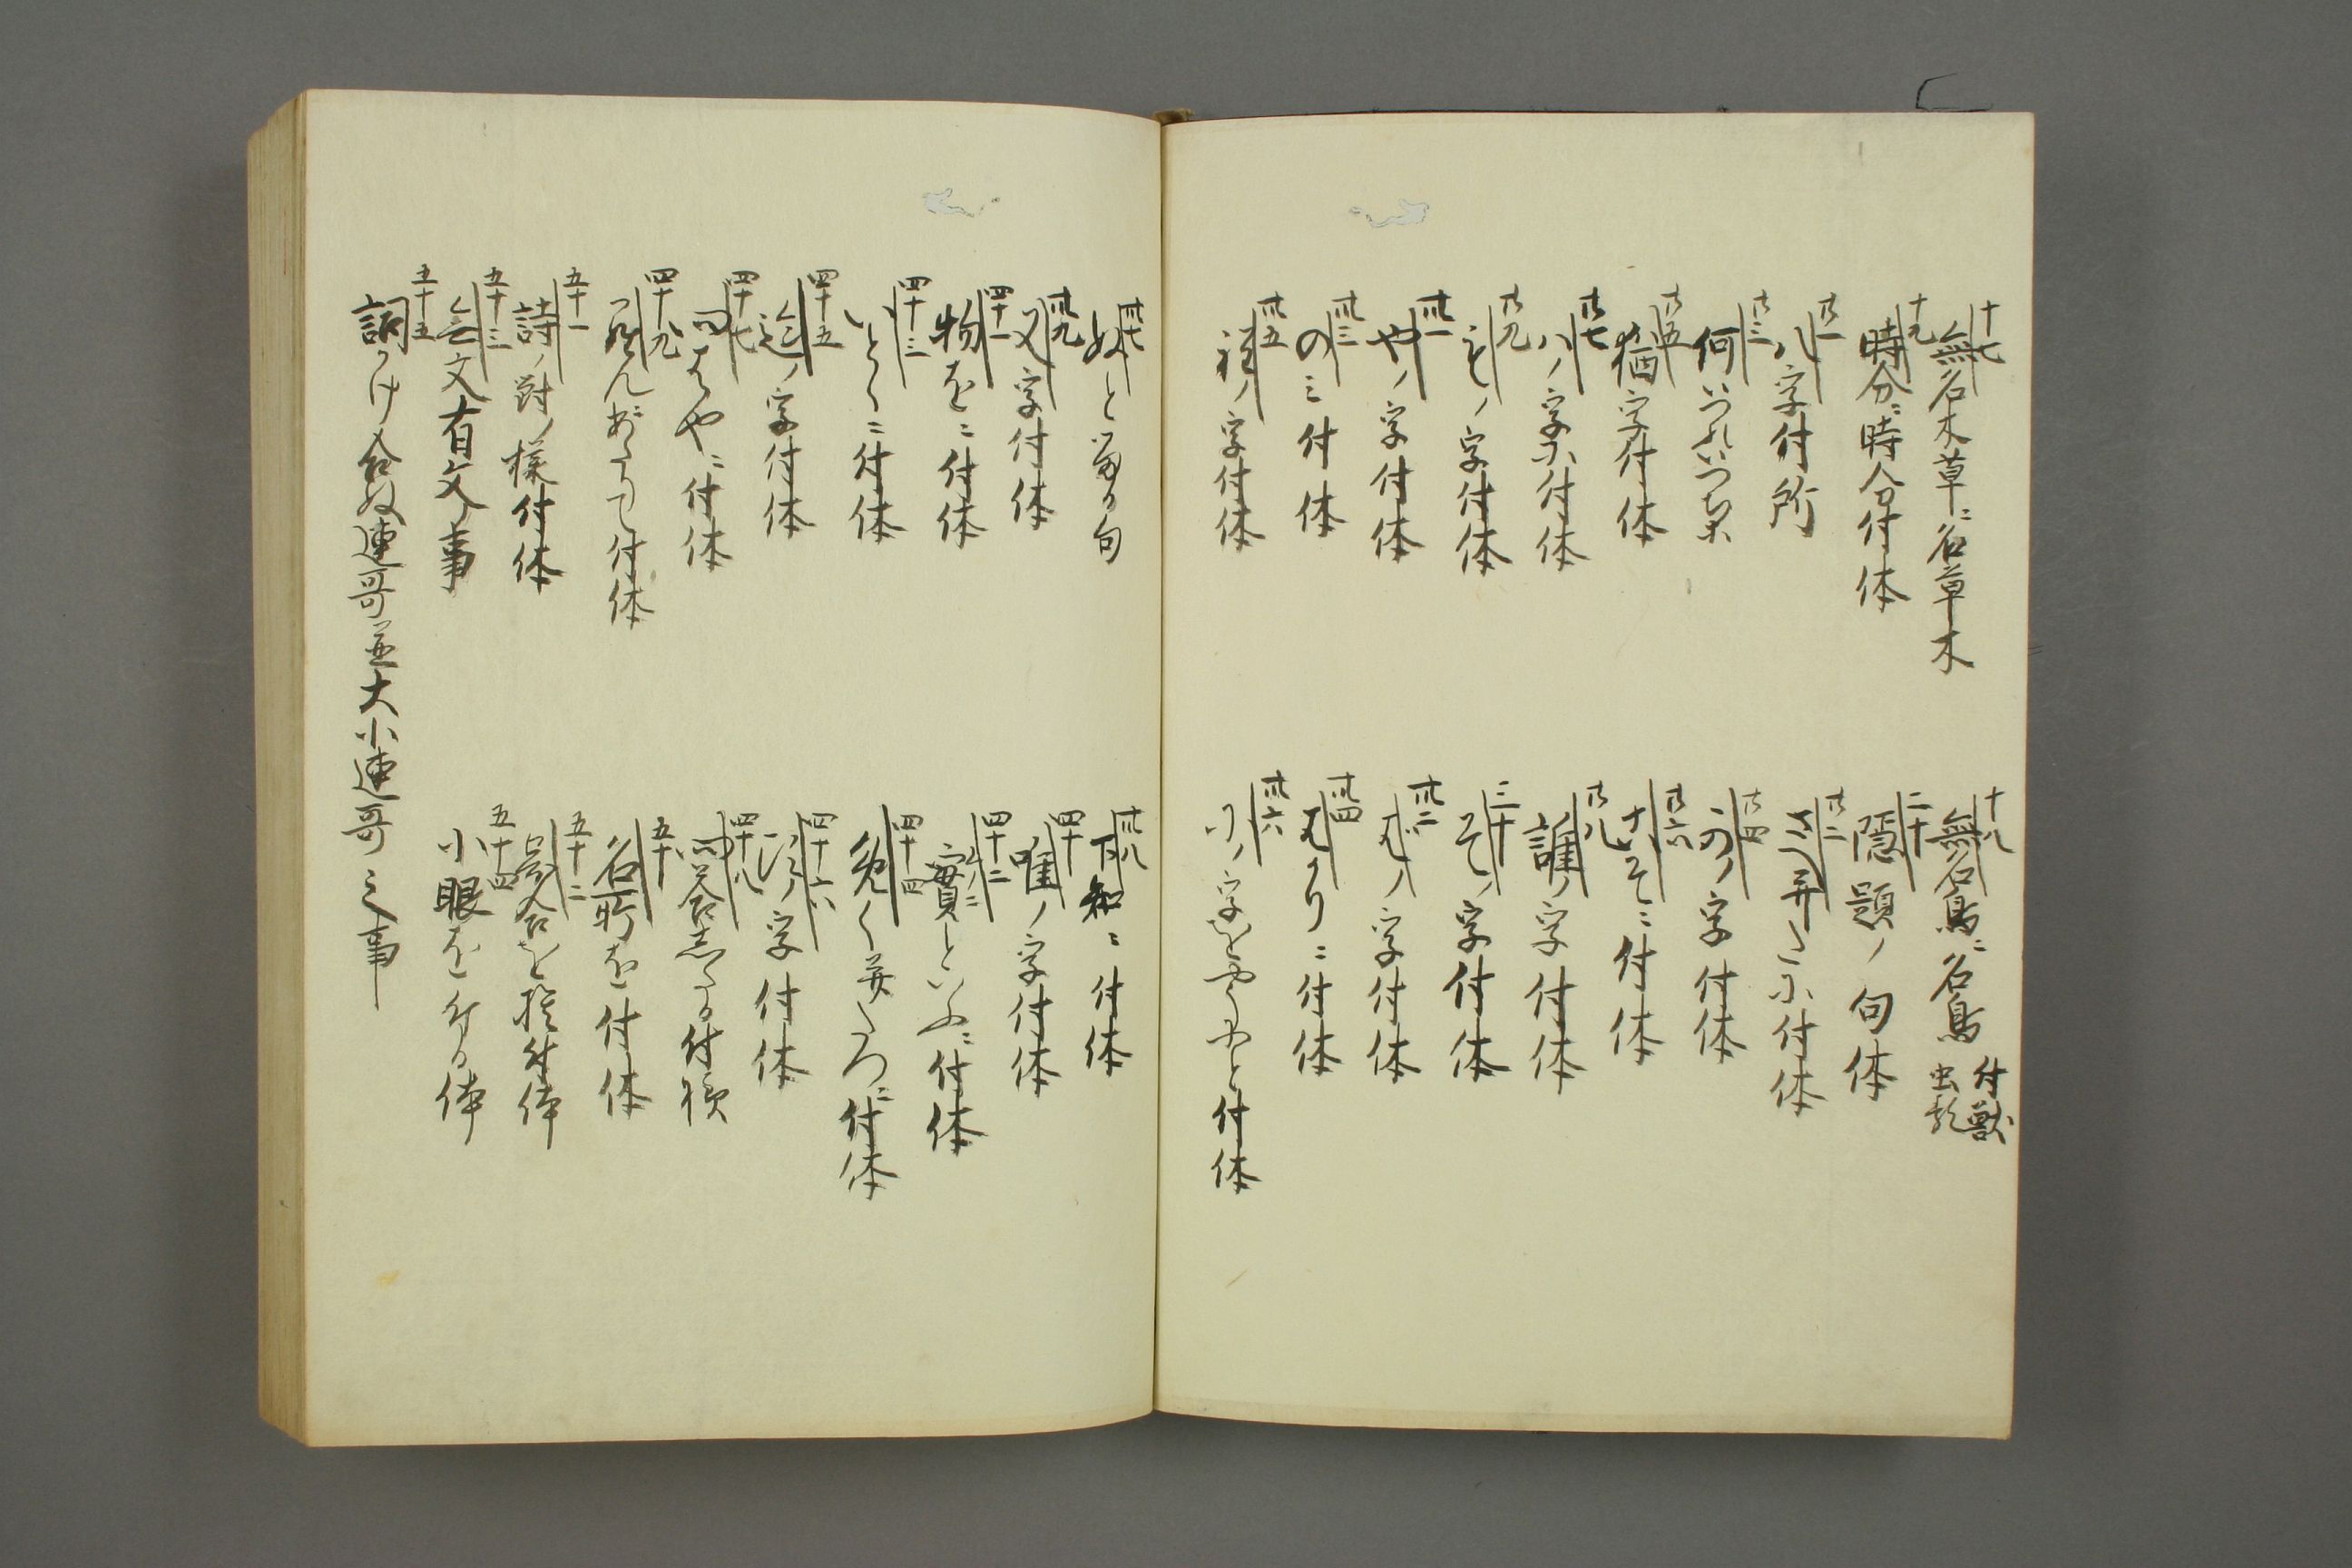 十七 無名木草ニ名草木
十八 無名鳥ニ名鳥 付獣虫類
十九 時分ニ時分付体
二十 隠題ノ句体
廿一 八字付所
廿二 付体
廿三 何いつれいつち
廿四 かノ字付体
廿五 猶字付体
廿六 こそニ付体
廿七 ハノ字付体
廿八 誰ノ字付体
廿九 もノ字付体
三十 そノ字付体
卅一 やノ字付体
卅二 とノ字付体
卅三 のミ付体
卅四 はかりニ付体
卅五 程ノ字付体
卅六 付体
卅七 ぬと留る句
卅八 下知ニ付体
卅九 又字付体
四十 唯ノ字付体
四十一 物をニ付体
四十二 實といふニ付体
四十三 いとゝニ付体
四十四 付体
四十五 迄ノ字付体
四十六 ノ字付体
四十七 問はやニ付体
四十八 問答したる付様
四十九 付体
五十 名所を付体
五十一 詩ノ対ノ様付体
五十二 景合を捨付体
五十三 無文有文ノ事
五十四 小眼を付る体
五十五 詞かけ合ぬ連哥並大小連哥之事